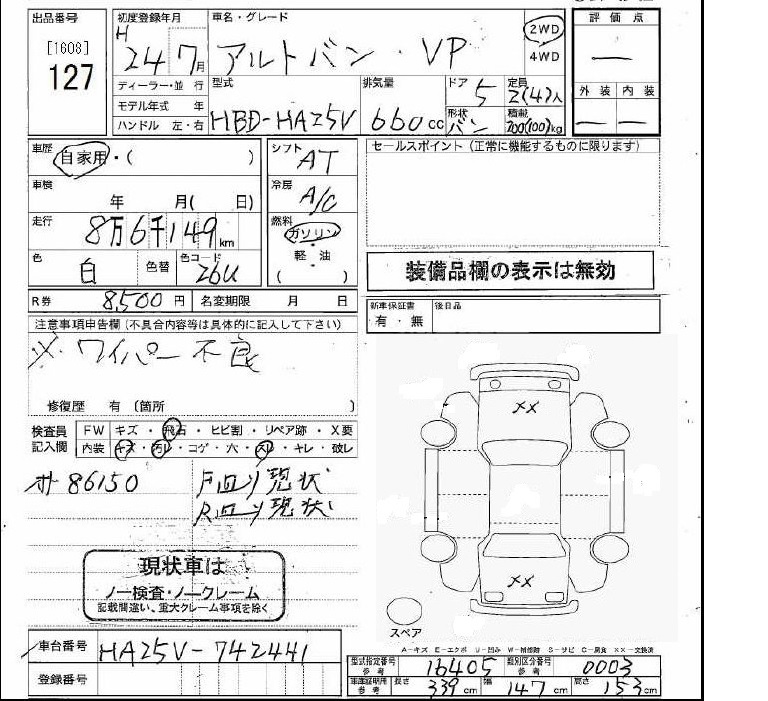 出品番号
[1608]
127
初度登録年月
H
24 7月
車名・グレード
アルトバン・VP
2WD
4WD
評価点
—
外装 内装
— —
ディーラー・並行
モデル年式 年
ハンドル 左・右
型式
HBD-HA25V
排気量
660cc
ドア
5
形状
バン
定員
2(4)人
積載
200(100)kg
車歴
自家用・( )
車検
年 月( 日)
走行
8万6千149km
色
白
色替
色コード
26U
シフト
AT
冷房
A/C
燃料
ガソリン
・
軽油
( )
セールスポイント(正常に機能するものに限ります)
装備品欄の表示は無効
R券 8,500円 名変期限 月 日
新車保証書
有・無
後日品
注意事項申告欄(不具合内容等は具体的に記入して下さい)
※・ワイパー不良
修復歴 有(箇所 )
検査員
記入欄
FW キズ・飛石・ヒビ割・リペア跡・X要
内装 キズ・汚レ・コゲ・穴・スレ・キレ・破レ
86150
F回り現状
R回り現状
現状車は
ノー検査・ノークレーム
記載間違い、重大クレーム事項を除く
××
××
スペア
A-キズ E-エクボ U-凹み W-補修跡 S-サビ C-腐食 ××-交換済
車台番号 HA25V-742441
登録番号
型式指定番号
参考
16405
類別区分番号
参考
0003
車庫証明用
参考
長さ 339cm 幅 147cm 高さ 153cm